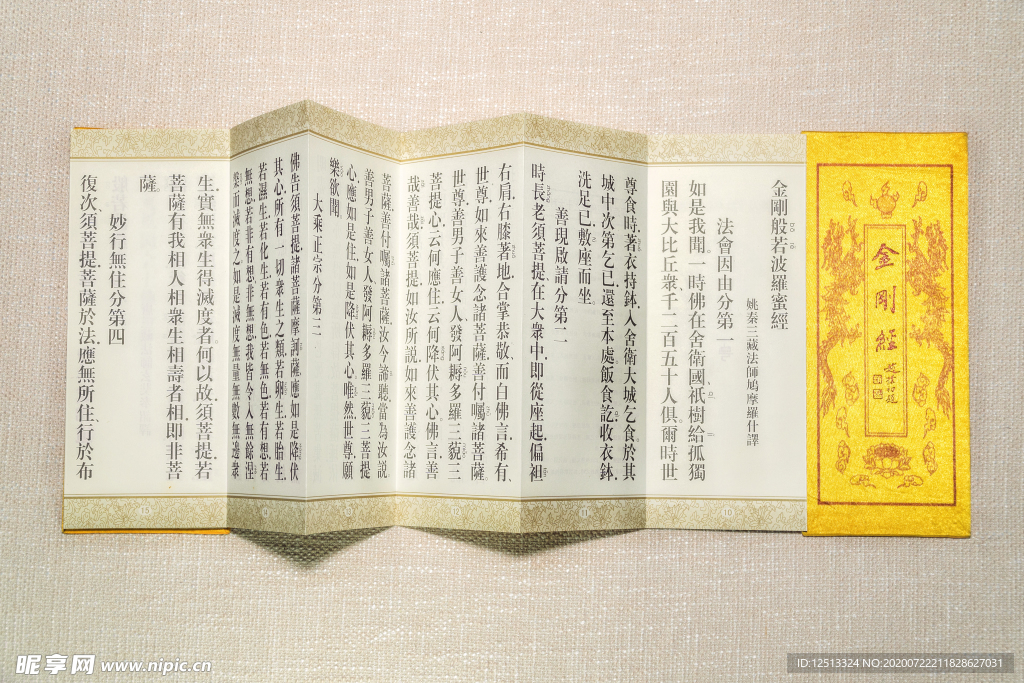 金剛經
金剛般若波羅蜜經
姚秦三藏法師鳩摩羅什譯
法會因由分第一
如是我聞。一時佛在舍衛國、祇樹給孤獨
園與大比丘衆、千二百五十人俱。爾時世
尊食時、著衣持鉢、入舍衛大城乞食。於其
城中次第乞已、還至本處。飯食訖、收衣鉢、
洗足已、敷座而坐。
善現啟請分第二
時長老須菩提、在大衆中、即從座起、偏袒
右肩、右膝著地、合掌恭敬、而白佛言、希有、
世尊、如來善護念諸菩薩、善付囑諸菩薩。
世尊、善男子善女人、發阿耨多羅三藐三
菩提心、云何應住、云何降伏其心、佛言、善
哉善哉、須菩提、如汝所説、如來善護念諸
菩薩、善付囑諸菩薩、汝今諦聽、當為汝説、
善男子善女人、發阿耨多羅三藐三菩提
心、應如是住、如是降伏其心。唯然、世尊、願
樂欲聞。
大乘正宗分第三
佛告須菩提、諸菩薩摩訶薩、應如是降伏
其心、所有一切衆生之類、若卵生、若胎生、
若濕生、若化生、若有色、若無色、若有想、若
無想、若非有想、非無想、我皆令入無餘涅
槃而滅度之、如是滅度無量無數無邊衆
生、實無衆生得滅度者。何以故、須菩提、若
菩薩有我相人相衆生相壽者相、即非菩
薩。
妙行無住分第四
復次、須菩提、菩薩於法、應無所住、行於布
15
12
11
10
昵享网 www.nipic.cn
ID:12513324 NO:20200722211828627031